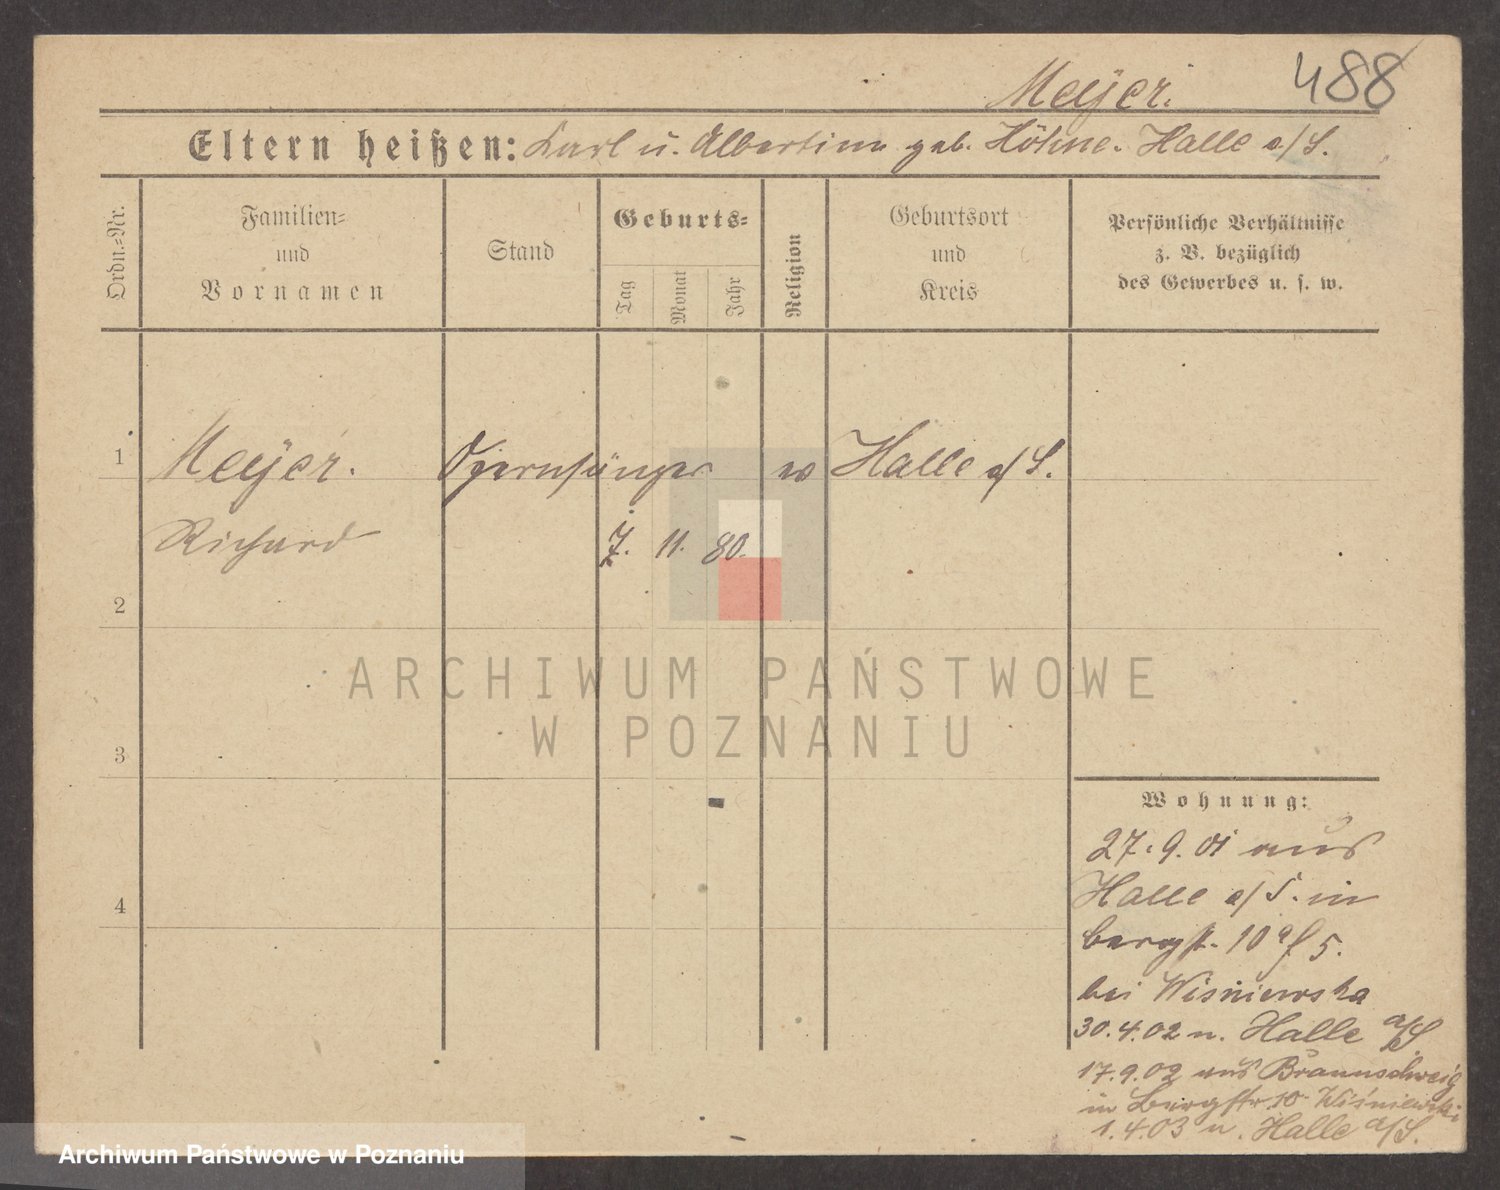 Meyer.
488
Eltern heißen: Karl u. Albertine geb. Höhne. Halle a/S.
Ordn.=Nr.
Familien=
und
Vornamen
Stand
Geburts=
Tag
Monat
Jahr
Religion
Geburtsort
und
Kreis
Persönliche Verhältnisse
z. B. bezüglich
des Gewerbes u. s. w.
1
Meyer. Opernsänger ev Halle a/S.
Richard 7. 11. 80.
2
3
4
Wohnung:
27.9.01 aus
Halle a/S. in
Bergst. 10
bei Wiśniewska
30.4.02 n. Halle a/S
17.9.02 aus Braunschweig
in Bergstr 10 Wiśniewski
1.4.03 n. Halle a/S.
ARCHIWUM PAŃSTWOWE
W POZNANIU
Archiwum Państwowe w Poznaniu